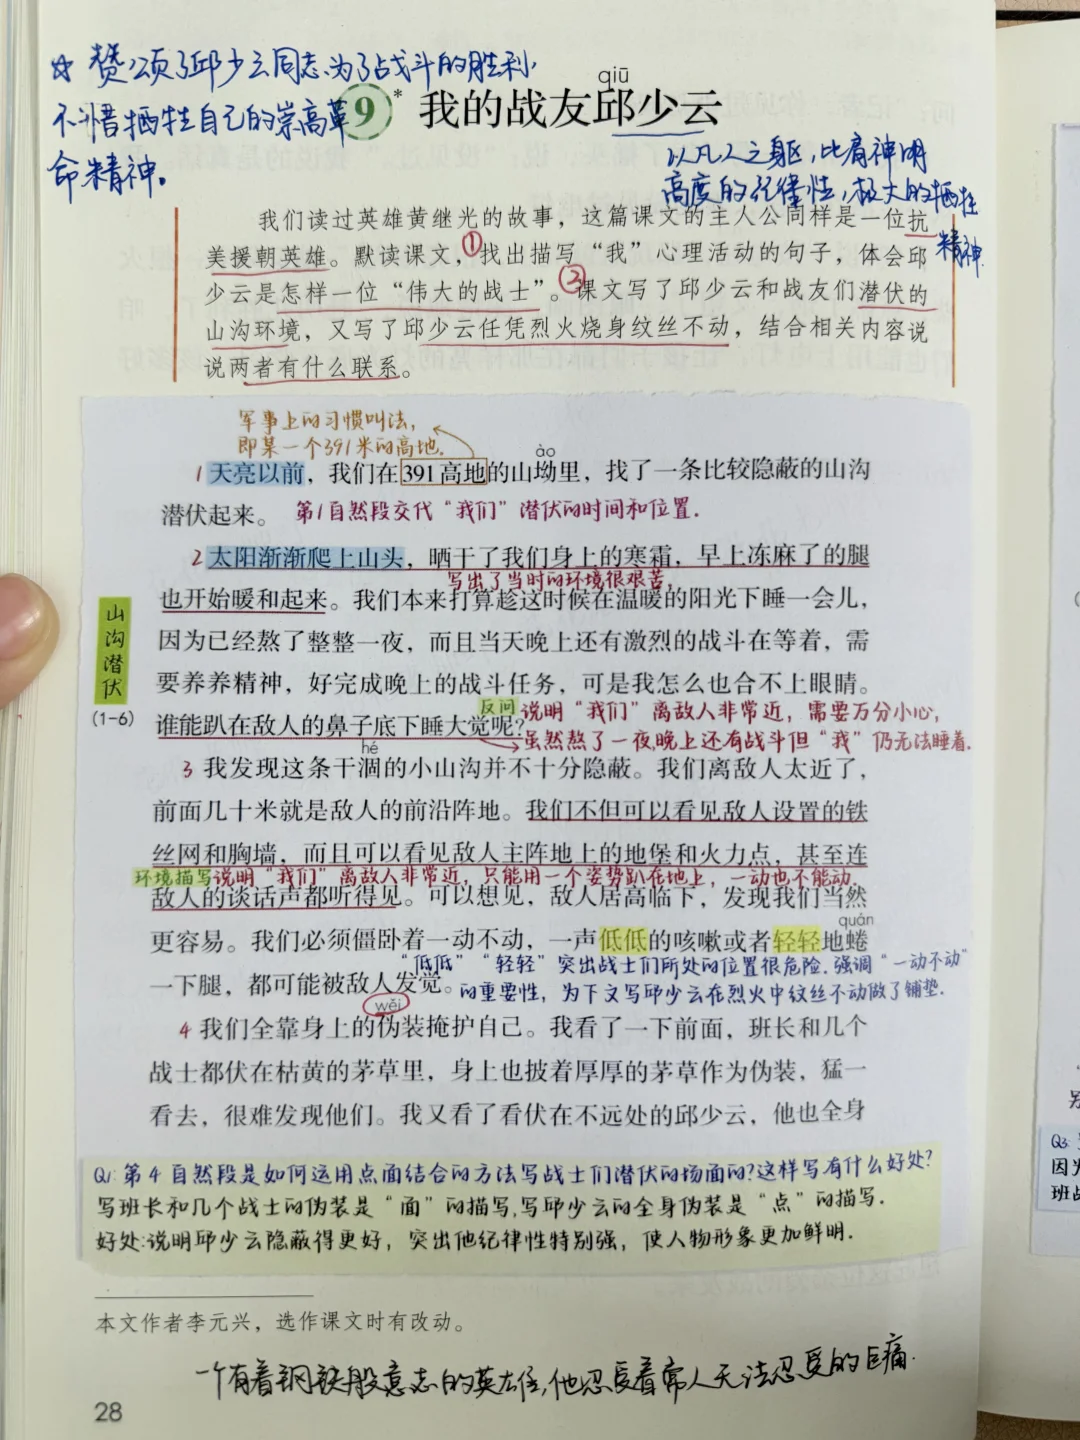 ☆ 赞颂了邱少云同志为了战斗的胜利，
不惜牺牲自己的崇高革
命精神。
qiū
9* 我的战友邱少云
以凡人之躯，比肩神明
高度的纪律性，极大的牺牲
精神
我们读过英雄黄继光的故事，这篇课文的主人公同样是一位抗
美援朝英雄。默读课文，①找出描写“我”心理活动的句子，体会邱
少云是怎样一位“伟大的战士”。③课文写了邱少云和战友们潜伏的
山沟环境，又写了邱少云任凭烈火烧身纹丝不动，结合相关内容说
说两者有什么联系。
军事上的习惯叫法，
即某一个391米的高地.
ào
1 天亮以前，我们在391高地的山坳里，找了一条比较隐蔽的山沟
潜伏起来。 第1自然段交代“我们”潜伏的时间和位置.
2 太阳渐渐爬上山头，晒干了我们身上的寒霜，早上冻麻了的腿
写出了当时的环境很艰苦.
也开始暖和起来。我们本来打算趁这时候在温暖的阳光下睡一会儿，
因为已经熬了整整一夜，而且当天晚上还有激烈的战斗在等着，需
要养养精神，好完成晚上的战斗任务，可是我怎么也合不上眼睛。
山沟潜伏
(1-6)
反问 说明“我们”离敌人非常近，需要万分小心，
谁能趴在敌人的鼻子底下睡大觉呢？
虽然熬了一夜,晚上还有战斗但“我”仍无法睡着.
hé
3 我发现这条干涸的小山沟并不十分隐蔽。我们离敌人太近了，
前面几十米就是敌人的前沿阵地。我们不但可以看见敌人设置的铁
丝网和胸墙，而且可以看见敌人主阵地上的地堡和火力点，甚至连
环境描写 说明“我们”离敌人非常近，只能用一个姿势趴在地上，一动也不能动.
敌人的谈话声都听得见。可以想见，敌人居高临下，发现我们当然
quán
更容易。我们必须僵卧着一动不动，一声低低的咳嗽或者轻轻地蜷
“低低”“轻轻”突出战士们所处的位置很危险.强调“一动不动”
一下腿，都可能被敌人发觉。
的重要性，为下文写邱少云在烈火中纹丝不动做了铺垫.
wěi
4 我们全靠身上的伪装掩护自己。我看了一下前面，班长和几个
战士都伏在枯黄的茅草里，身上也披着厚厚的茅草作为伪装，猛一
看去，很难发现他们。我又看了看伏在不远处的邱少云，他也全身
Q1: 第4自然段是如何运用点面结合的方法写战士们潜伏的场面的?这样写有什么好处?
写班长和几个战士的伪装是“面”的描写,写邱少云的全身伪装是“点”的描写.
好处:说明邱少云隐蔽得更好，突出他纪律性特别强，使人物形象更加鲜明.
本文作者李元兴，选作课文时有改动。
一个有着钢铁般意志的英雄,他忍受着常人无法忍受的巨痛.
28
Q3:
因为
班战